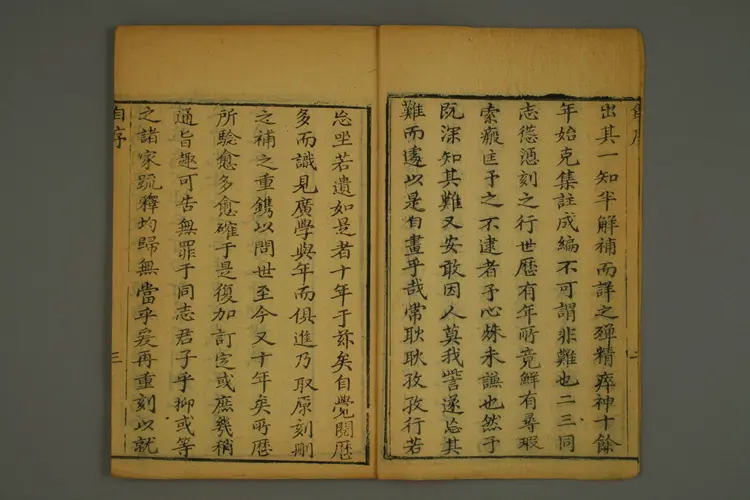 出其一知半解補而詳之殫精瘁神十餘
年始克集註成編不可謂非難也二三同
志慫慂刻之行世歷有年所竟鮮有尋瑕
索瘢匡予之不逮者予心殊未謙也然予
既深知其難又安敢因人莫我訾遂忘其
難而遽以是自畫乎哉常耿耿孜孜行若
忘坐若遺如是者十年于茲矣自覺閱歷
多而識見廣學與年而俱進乃取原刻刪
之補之重鐫以問世至今又十年矣所歷
所驗愈多愈確于是復加訂定或庶幾稍
通旨趣可告無罪于同志君子乎抑或等
之諸家疏釋均歸無當乎爰再重刻以就
自序
三